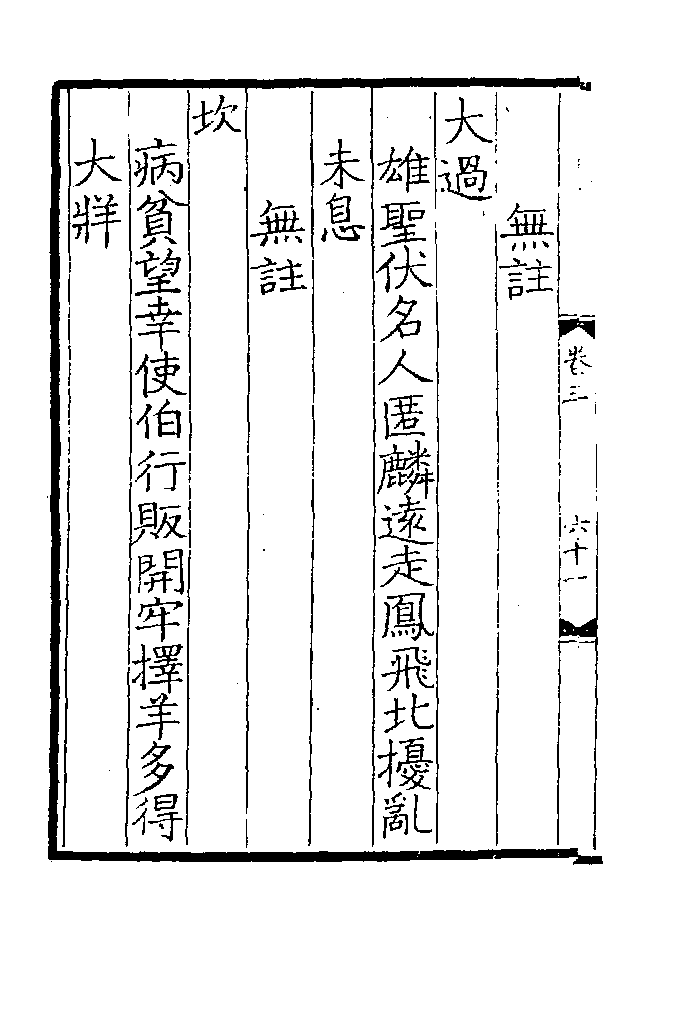 無註
大過
雄聖伏名人匿麟遠走鳳飛北擾亂
未息
無註
坎
病貧望幸使伯行販開牢擇羊多得
大牂
卷三
六十一